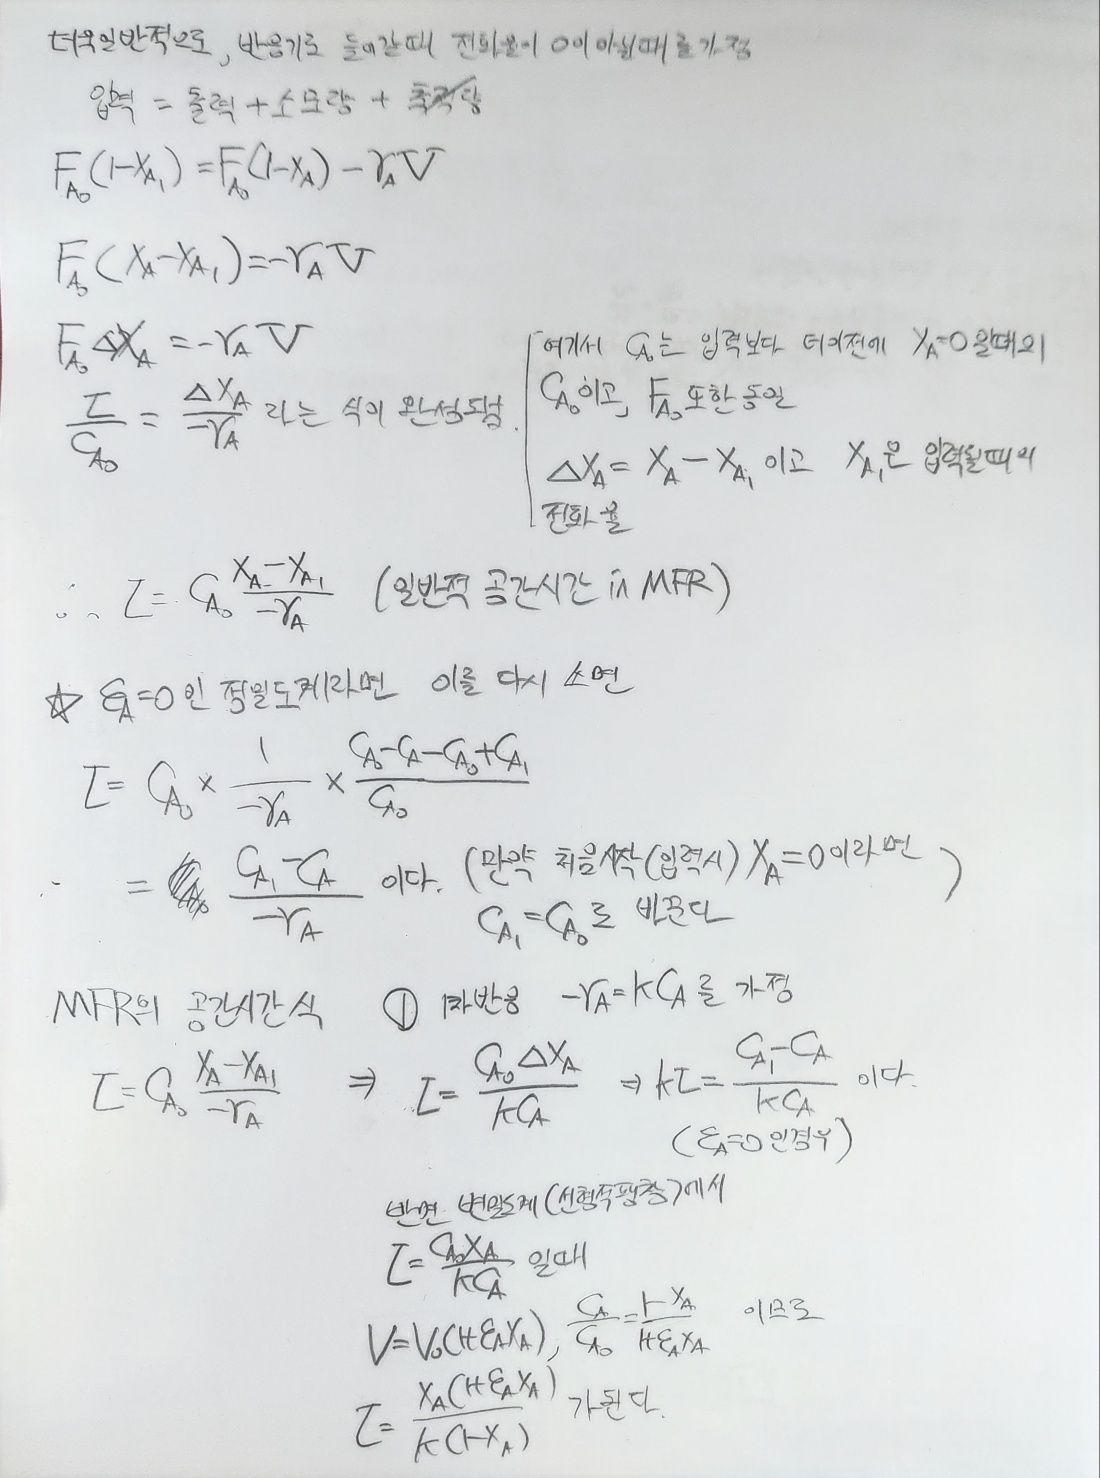 더욱일반적으로, 반응기로 들어갈때 전화율이 0이아닐때를가정
입력 = 출력 + 소모량 + 축적량
F_A₀(1-X_A₁) = F_A₀(1-X_A) - r_A V
F_A₀(X_A - X_A₁) = -r_A V
F_A₀ ΔX_A = -r_A V
τ/C_A₀ = ΔX_A/-r_A 라는 식이 완성되넴.
여기서 C_A₀는 입력보다 더이전에 X_A=0 일때의
C_A₀이고, F_A₀ 또한 동일
ΔX_A = X_A - X_A₁ 이고 X_A₁은 입력될때의
전화율
∴ τ = C_A₀ (X_A - X_A₁)/-r_A (일반적 공간시간 in MFR)
☆ ε_A=0 인 정밀도계라면 이를 다시 쓰면
τ = C_A₀ × 1/-r_A × (C_A₀ - C_A - C_A₀ + C_A₁)/C_A₀
= (C_A₁ - C_A)/-r_A 이다. (만약 처음시작(입력시) X_A=0이라면
C_A₁ = C_A₀로 바꾼다)
MFR의 공간시간식 ① 1차반응 -r_A = kC_A를 가정
τ = C_A₀ (X_A - X_A₁)/-r_A ⇒ τ = C_A₀ΔX_A/kC_A ⇒ kτ = (C_A₁ - C_A)/kC_A 이다.
(ε_A=0 인경우)
반면 변밀도계(선형적팽창)에서
τ = C_A₀X_A/kC_A 일때
V = V₀(1+ε_A X_A), C_A/C_A₀ = (1-X_A)/(1+ε_A X_A) 이므로
τ = X_A(1+ε_A X_A)/k(1-X_A) 가된다.